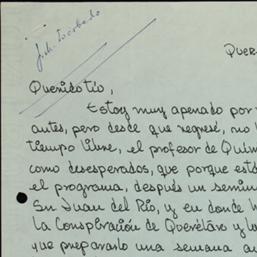 Quer
Querido tío,
Estoy muy apenado por
antes, pero desde que regresé, no
tiempo libre, el profesor de Quím
como desesperados, que porque está
el programa, después un semin
Sn Juan del Río, y en donde
la Conspiración de Querétaro y
que prepararlo una semana an